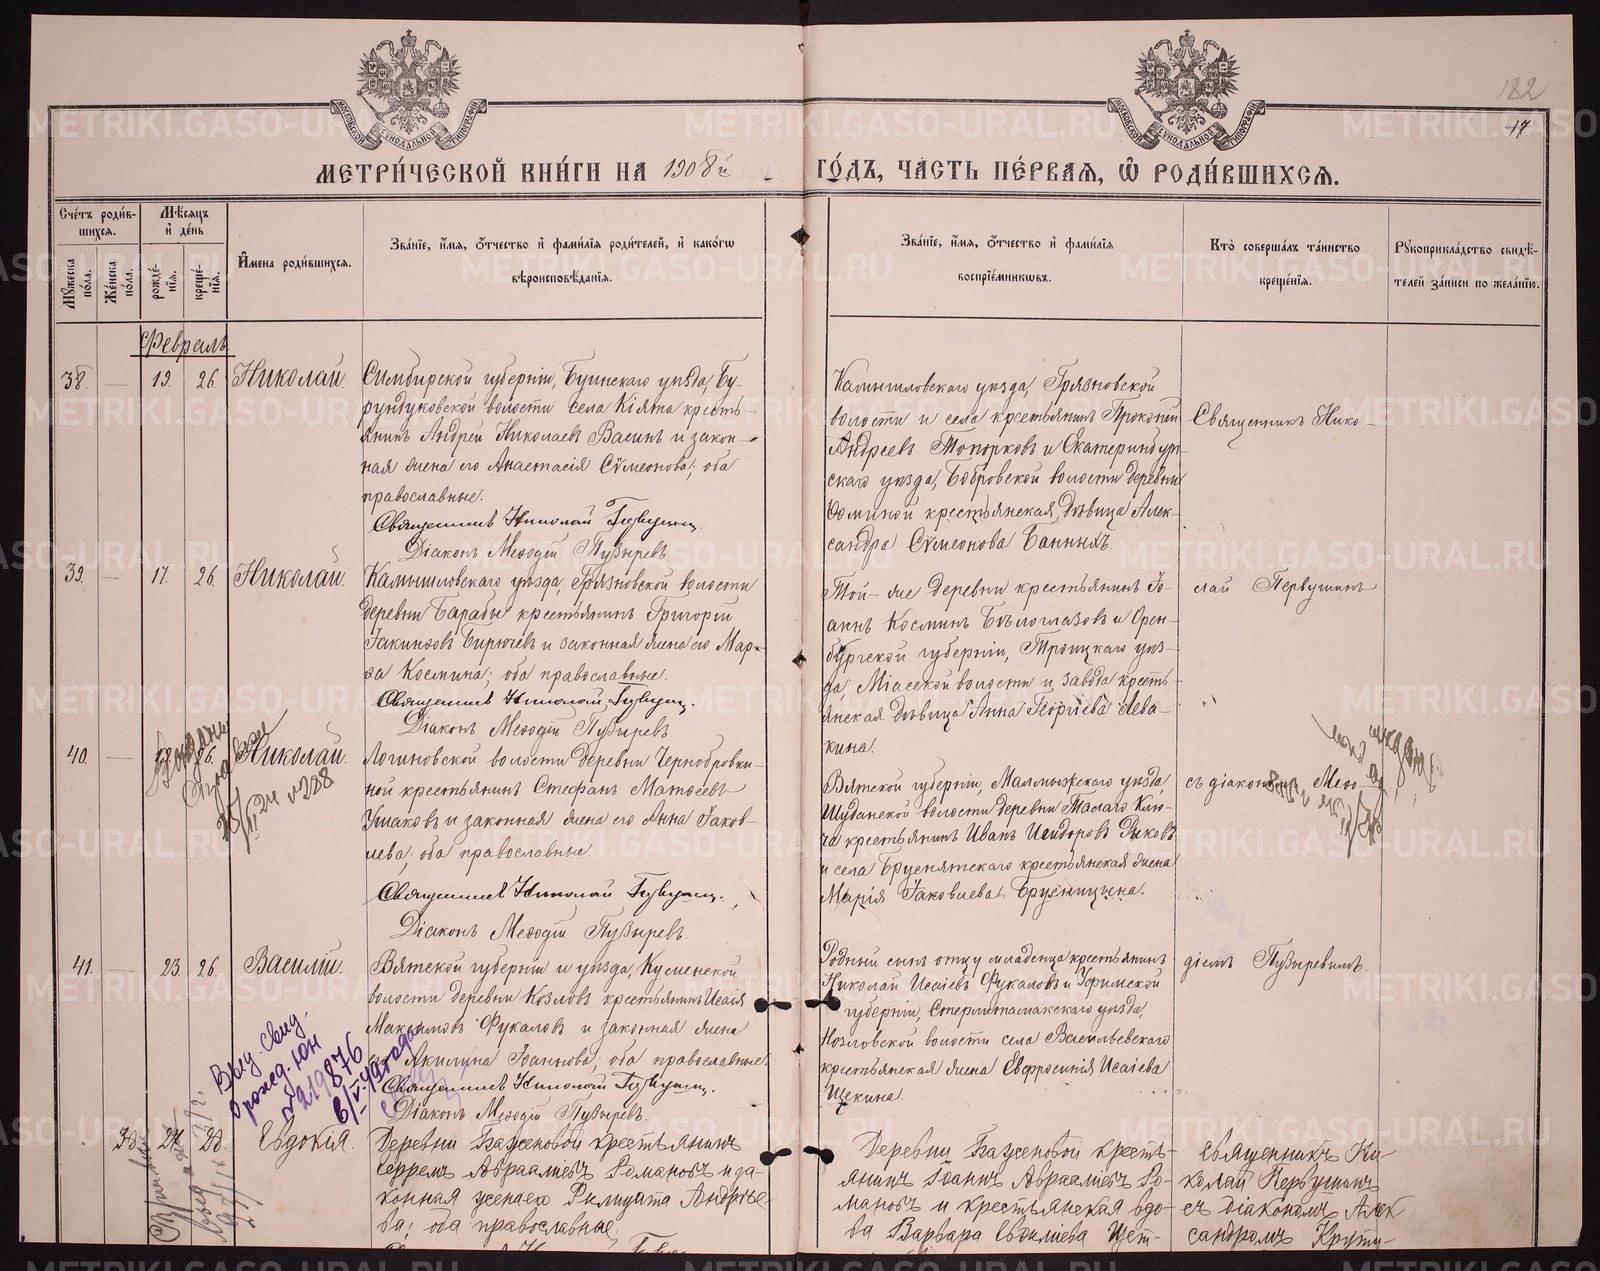 182
17.
МОСКОВСКОЙ СѴНОДАЛЬНОЙ ТИПОГРАФІИ
МОСКОВСКОЙ СѴНОДАЛЬНОЙ ТИПОГРАФІИ
МЕТРИ́ЧЕСКОЙ КНИ́ГИ НА 1908й ГО́ДЪ, ЧА́СТЬ ПЕ́РВАЯ, Ѽ РОДИ́ВШИХСЯ.
Счетъ роди́в-
шихся.
Мѣсяцъ
и де́нь
Мужеска по́ла.
Же́нска по́ла.
рожде́-
нія.
креще́-
нія.
И҆мена роди́вшихся.
Зва́ніе, и҆мя, ѻ҆тчество и҆ фами́лія роди́телей, и҆ како́гѡ
вѣроисповѣ́данія.
Зва́ніе, и҆мя, ѻ҆тчество и҆ фами́лія
воспріе́мникѡвъ.
Кто̀ соверша́лъ та́инство
креще́нія.
Рꙋкоприкла́дство свидѣ́-
телей за́писи по жела́нію.
Февраль
38. — 19. 26. Николай.
Симбирской губерніи, Буинскаго уѣзда, Бу-
рундуковской волости села Кіята кресть-
янинъ Андрей Николаевъ Васинъ и закон-
ная жена его Анастасія Сѵмеонова; оба
православные.
Священникъ Николай
Діаконъ Меѳодій Пузыревъ.
Камышловскаго уѣзда, Грязновской
волости и села крестьянинъ Прокопій
Андреевъ Топорковъ и Екатеринбург-
скаго уѣзда, Бобровской волости деревни
Ѳоминой крестьянская дѣвица Алек-
сандра Сѵмеонова Банныхъ.
Священникъ Нико-
39. — 17. 26. Николай.
Камышловскаго уѣзда, Грязновской волости
деревни Барабы крестьянинъ Григорій
Іакинѳовъ Бирючевъ и законная жена его Мар-
ѳа Космина; оба православные.
Священникъ Николай
Діаконъ Меѳодій Пузыревъ.
Той-же деревни крестьянинъ Іо-
аннъ Косминъ Бѣлоглазовъ и Орен-
бургской губерніи, Троицкаго уѣз-
да, Міасской волости и завода кресть-
янская дѣвица Анна Георгіева Лева-
кина.
лай Первушинъ
40. — 18. 26. Николай.
№ 288
Логиновской волости деревни Чернобровки-
ной крестьянинъ Стефанъ Матѳеевъ
Ушаковъ и законная жена его Анна Іаков-
лева; оба православные.
Священникъ Николай
Діаконъ Меѳодій Пузыревъ.
Вятской губерніи, Малмыжскаго уѣзда,
Шуданской волости деревни Малаго Клю-
ча крестьянинъ Иванъ Исидоровъ Рыковъ
и села Бруснятскаго крестьянская жена
Марія Іаковлева Брусницына.
съ діакономъ Меѳо-
41. — 23. 26. Василій.
Вятской губерніи и уѣзда, Кусменской
волости деревни Козловъ крестьянинъ Исаія
Максимовъ Фукаловъ и законная жена
его Акилина Іоаннова; оба православные.
Священникъ Николай
Діаконъ Меѳодій Пузыревъ.
Родный сынъ отцу младенца крестьянинъ
Николай Исаіевъ Фукаловъ и Уфимской
губерніи, Стерлитамакскаго уѣзда,
Козловской волости села Васильевскаго
крестьянская жена Евфросинія Исаіева
Щекина.
діемъ Пузыревымъ.
Выд. свид.
о рожд. ЮН
№ 219876
6/V-49 года
Евдокія.
Деревни Баженовой крестьянинъ
Ефремъ Авраамiевъ Романовъ и за-
конная жена его Филицата Андрее-
ва; оба православные.
Деревни Баженовой кресть-
янинъ Іоаннъ Авраамiевъ Ро-
мановъ и крестьянская вдо-
ва Варвара Щет-
Священникъ Ни-
колай Первушинъ
съ діакономъ Алек-
сандромъ Крути-
METRIKI.GASO-URAL.RU